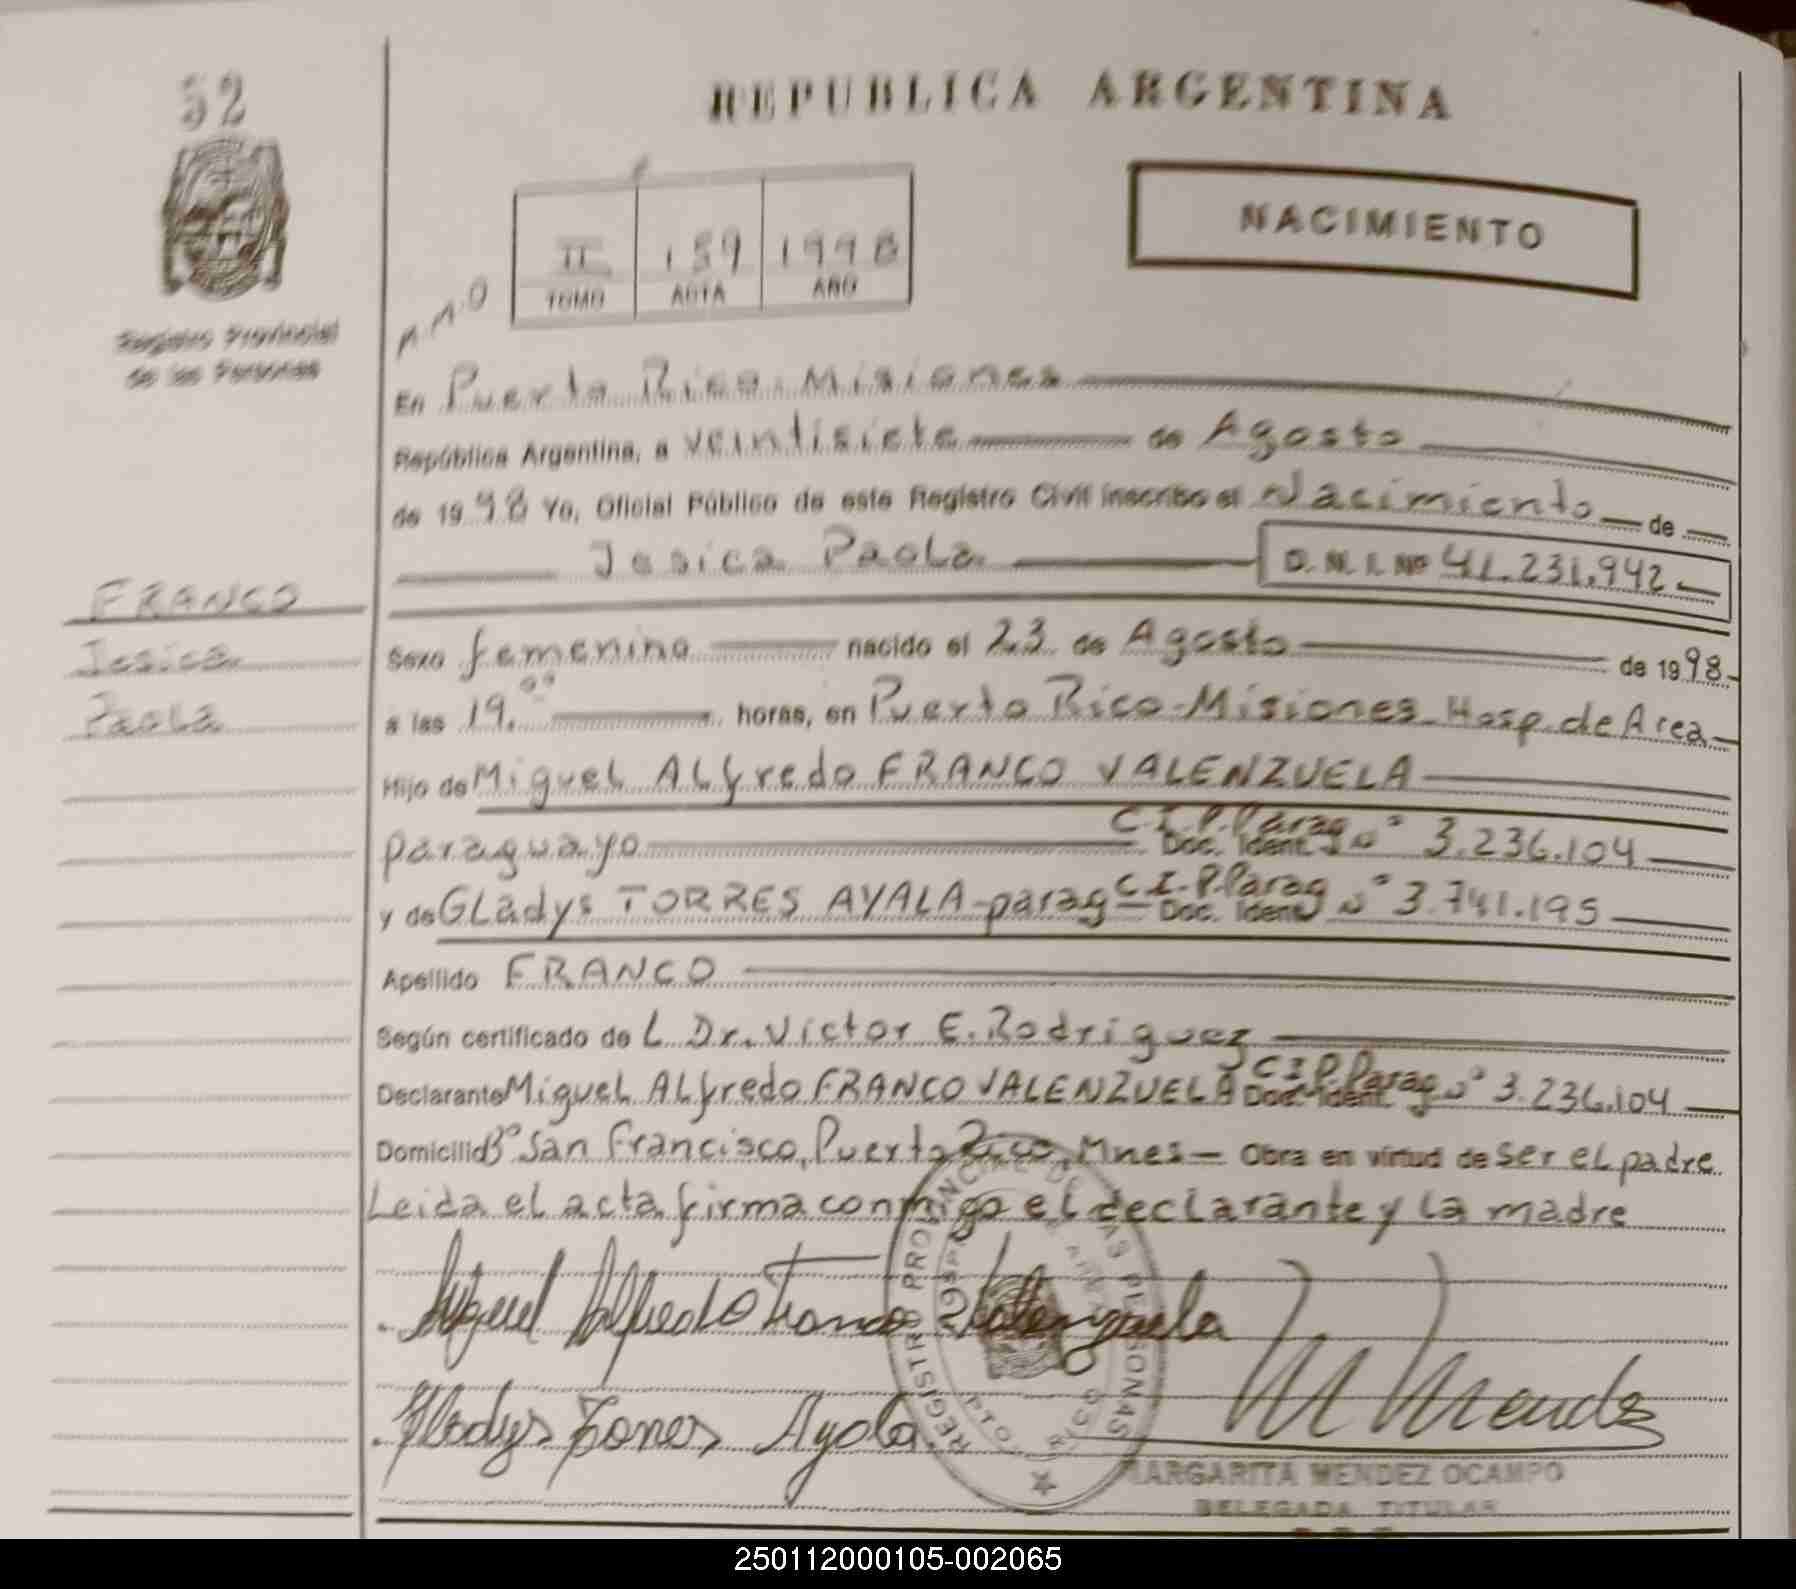 52
REPUBLICA ARGENTINA
NACIMIENTO
II 159 1998
TOMO ACTA AÑO
Registro Provincial
de las Personas
En Puerto Rico-Misiones
República Argentina, a veintisiete de Agosto
de 1998 Yo, Oficial Público de este Registro Civil inscribo el Nacimiento de
Jesica Paola D.N.I. Nº 41.231.942
FRANCO
Jesica
Paola
Sexo femenino nacido el 23 de Agosto de 1998
a las 19.00 horas, en Puerto Rico-Misiones-Hosp. de Area
Hijo de Miguel Alfredo FRANCO VALENZUELA
paraguayo C.I.P. Parag Doc. Ident. Nº 3.236.104
y de Gladys TORRES AYALA-parag C.I.P. Parag Doc. Ident. Nº 3.741.195
Apellido FRANCO
Según certificado de L Dr. Victor E. Rodriguez
Declarante Miguel Alfredo FRANCO VALENZUELA C.I.P. Parag Doc. Ident. Nº 3.236.104
Domicilio Bº San Francisco, Puerto Rico, Mnes- Obra en virtud de ser el padre
Leida el acta firma conmigo el declarante y la madre
Miguel Alfredo Franco Valenzuela
M Mendez
Gladys Torres Ayala
REGISTRO PROVINCIAL DE LAS PERSONAS
MARGARITA MENDEZ OCAMPO
DELEGADA TITULAR
250112000105-002065